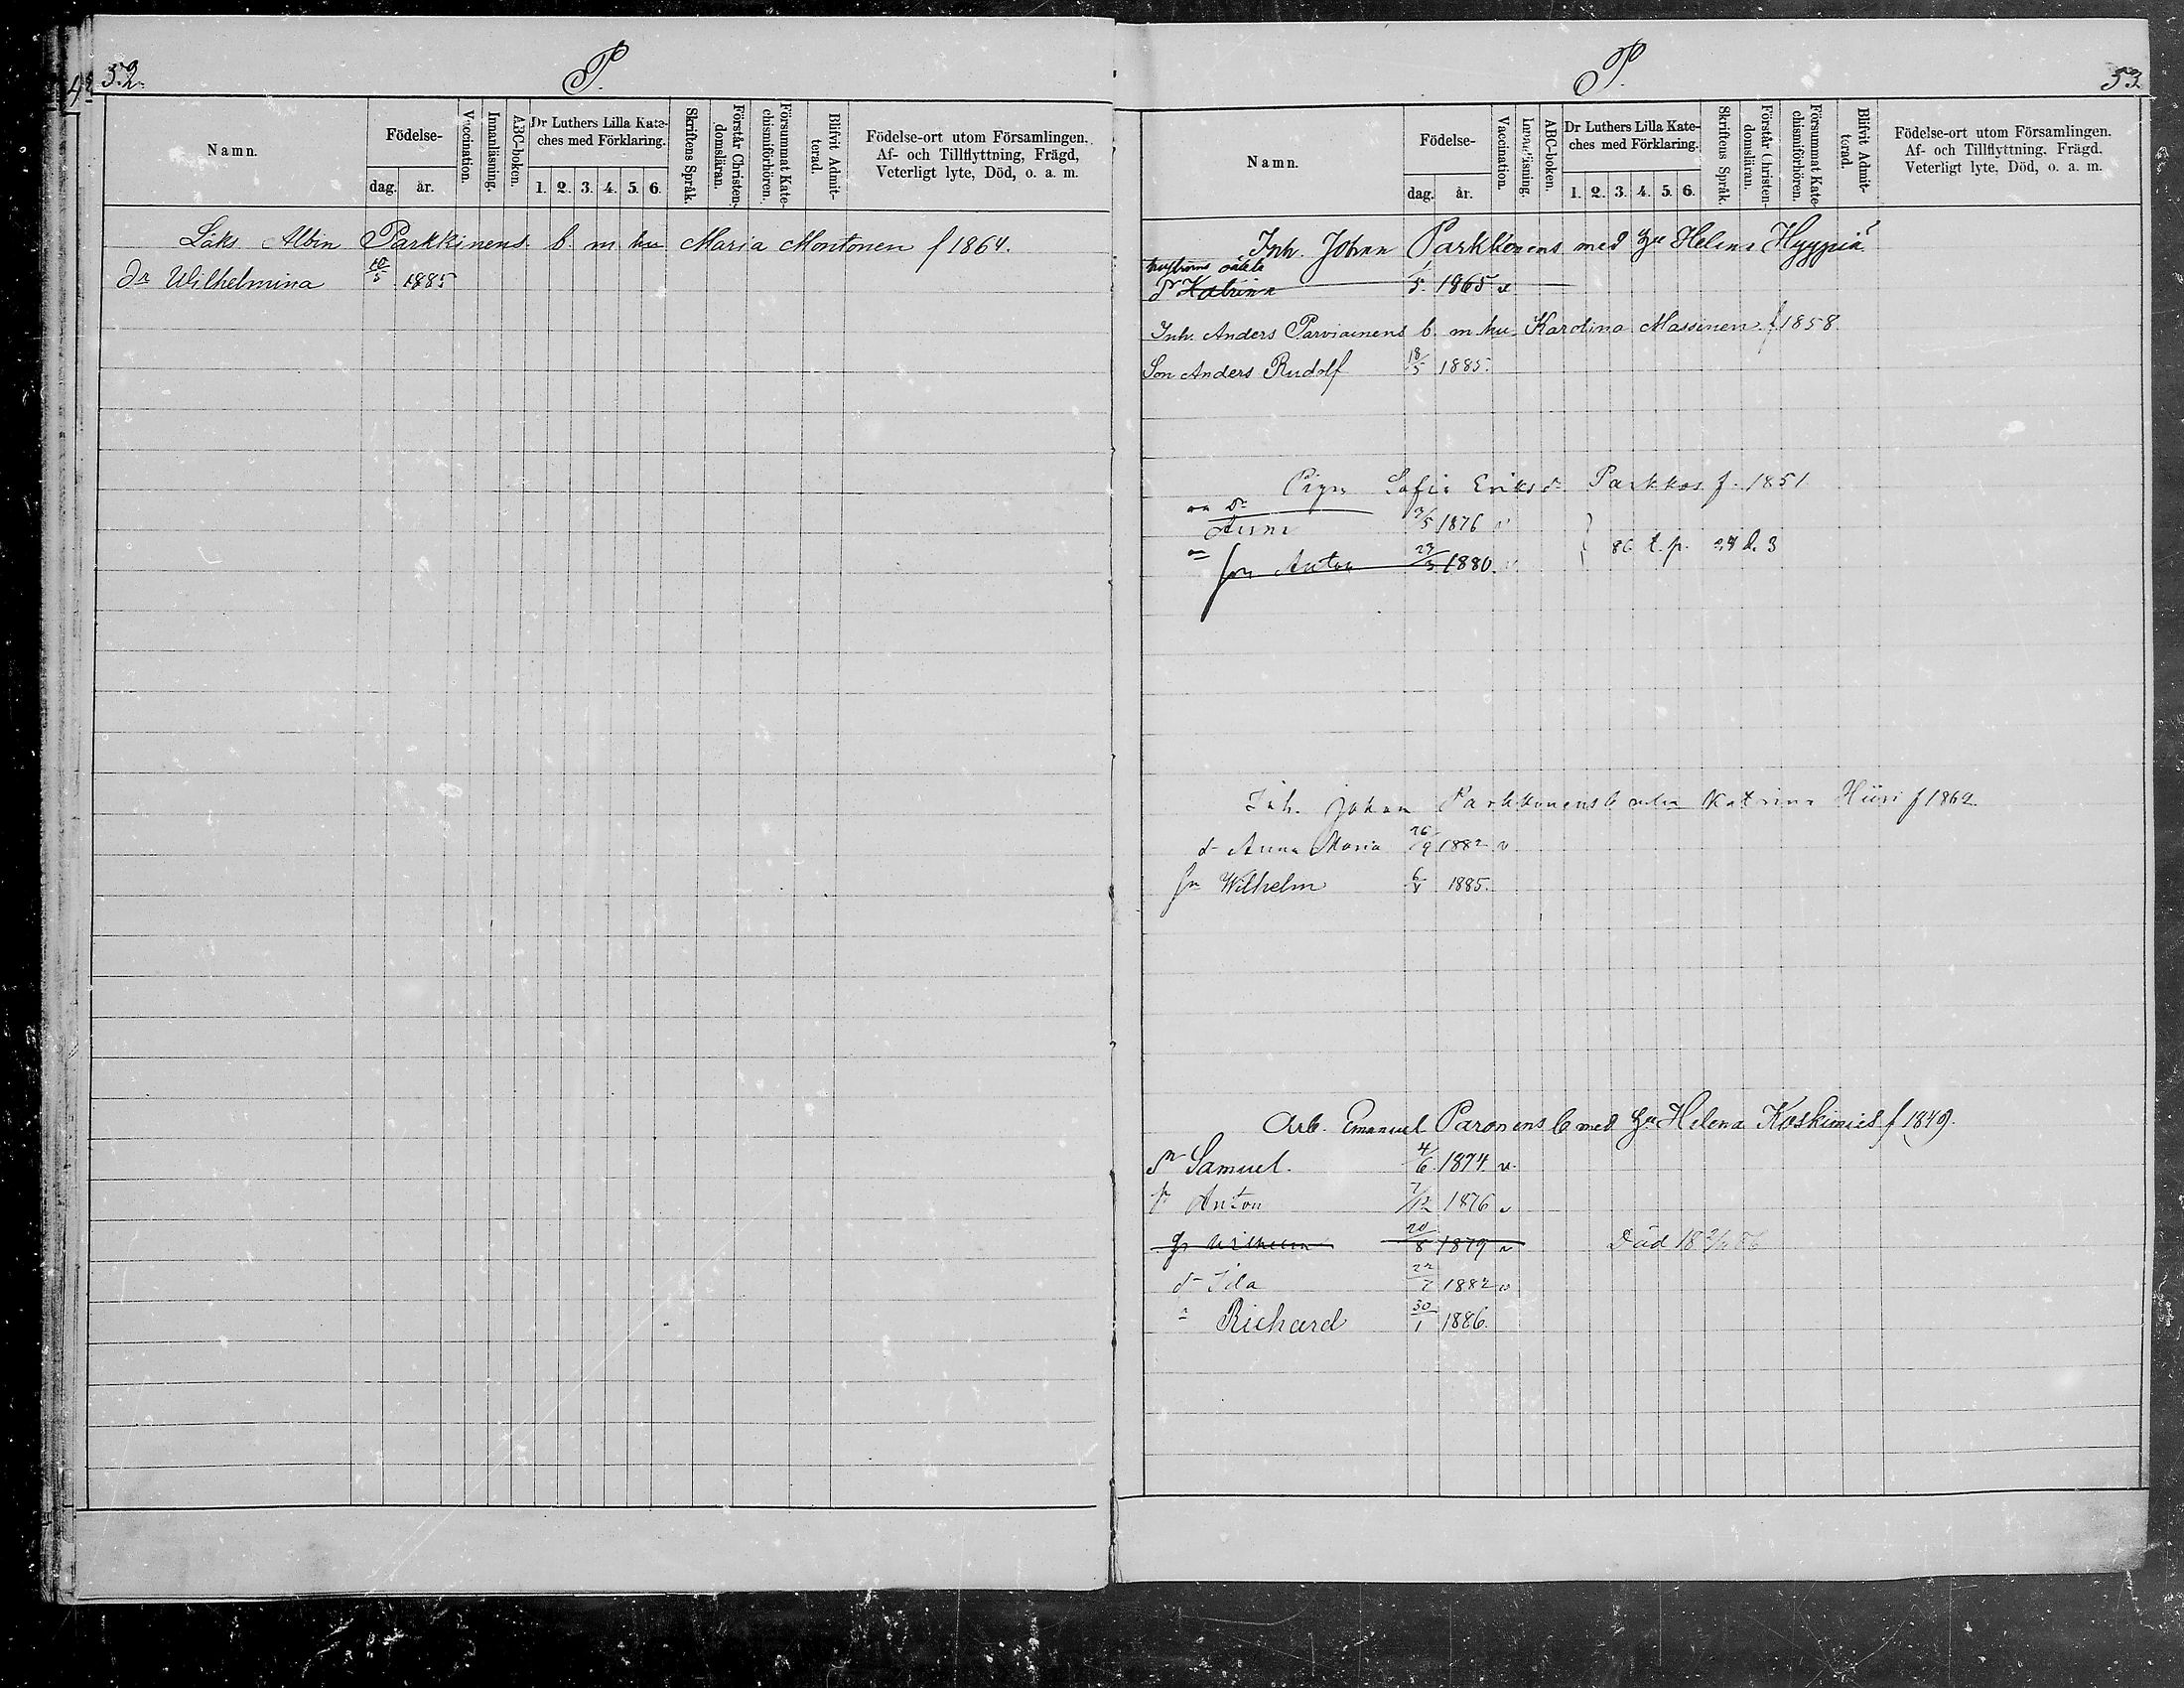 52.
P.
Namn.
Födelse-
dag.
år.
Vaccination.
Innanläsning.
ABC-boken.
Dr Luthers Lilla Kate-
ches med Förklaring.
1. 2. 3. 4. 5. 6.
Skriftens Språk.
Förstår Christen-
domsläran.
Försummat Kate-
chismiförhören.
Blifvit Admit-
terad.
Födelse-ort utom Församlingen.
Af- och Tillflyttning, Frägd,
Veterligt lyte, Död, o. a. m.
Albin Parkkinens b. m. hu Maria Montonen f 1864.
dr Wilhelmina 10/5 1885
P.
53
Namn.
Födelse-
dag.
år.
Vaccination.
Innanläsning.
ABC-boken.
Dr Luthers Lilla Kate-
ches med Förklaring.
1. 2. 3. 4. 5. 6.
Skriftens Språk.
Förstår Christen-
domsläran.
Försummat Kate-
chismiförhören.
Blifvit Admit-
terad.
Födelse-ort utom Församlingen.
Af- och Tillflyttning. Frägd.
Veterligt lyte, Död, o. a. m.
Inh. Johan Parkkonens med hu Helena Hyypiä
hustruns oäkta
dr Katrina 1/5 1865 v
Inh. Anders Parviainens b. m. hu Karolina Massinen f 1858.
Son Anders Rudolf 18/5 1885.
Pign Sofia Eriksd. Parkkos f. 1851
oä dr
Anna 1876 v
son Anton 1880. v
86 t. p.
Inh. Johan Parkkonens b Katrina Hiiri f 1862.
d Anna Maria 26/9 1882 v
sn Wilhelm 1885.
Arb. Emanuel Paronens b med hu Helena Koskimies f 1849.
sn Samuel. 4/6 1874. v.
sn Anton 7/12 1876 v
sn Wilhelm 20/8 1879 v Död
dr Ida 1882 v
Richard 30/1 1886.